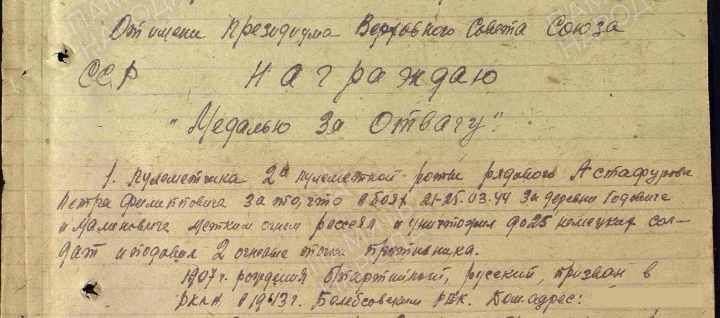 От имени Президиума Верховного Совета Союза
ССР Награждаю
"Медалью За Отвагу".
1. Пулеметчика 2й пулеметной роты рядового Астафурова
Петра Филипповича за то, что в боях 21-25.03.44 за деревни Годовичи
и Малиновичи метким огнем рассеял и уничтожил до 25 немецких сол-
дат и подавил 2 огневые точки противника.
1907 г. рождения б/партийный, русский, призван в
РККА в 1943 г. РВК. Дом. адрес: